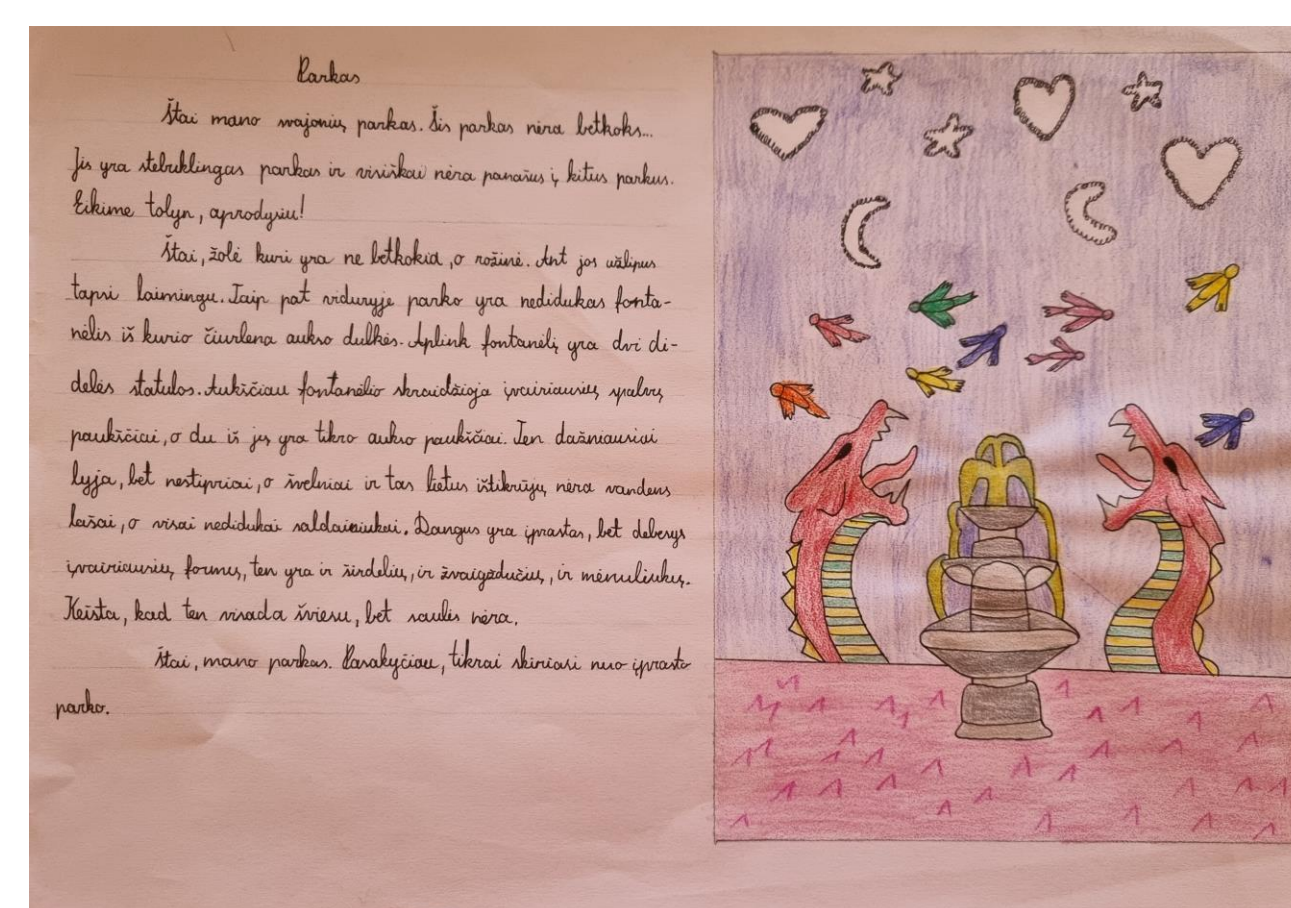 Parkas
Štai mano svajonių parkas. Šis parkas nėra betkoks...
Jis yra stebuklingas parkas ir visiškai nėra panašus į kitus parkus.
Eikime tolyn, aprodysiu!
Štai, žolė kuri yra ne betkokia, o rožinė. Ant jos užlipus
tapsi laimingu. Taip pat viduryje parko yra nedidukas fonta-
nėlis iš kurio čiurlena aukso dulkės. Aplink fontanėlį yra dvi di-
delės statulos. Aukščiau fontanėlio skraidžioja įvairiausių spalvų
paukščiai, o du iš jų yra tikro aukso paukščiai. Ten dažniausiai
lyja, bet nestipriai, o švelniai ir tas lietus ištikrūjų nėra vandens
lašai, o visai nedidukai saldainiukai. Dangus yra įprastas, bet debesys
įvairiausių formų, ten yra ir širdelių, ir žvaigždučių, ir mėnuliukų.
Keista, kad ten visada šviesu, bet saulės nėra.
Štai, mano parkas. Pasakyčiau, tikrai skiriasi nuo įprasto
parko.